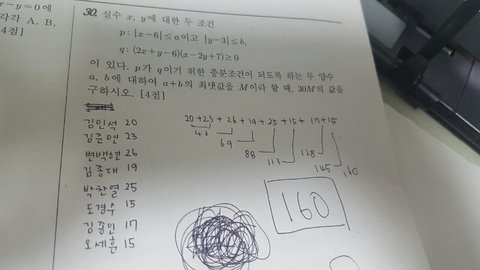 x-y=0에
각각 A, B.
[4점]
30. 실수 x, y에 대한 두 조건
p: |x-6|≤a이고 |y-3|≤b,
q: (2x+y-6)(x-2y+7)≥0
이 있다. p가 q이기 위한 충분조건이 되도록 하는 두 양수
a, b에 대하여 a+b의 최댓값을 M이라 할 때, 30M의 값을
구하시오. [4점]
김민석 20
김준면 23
변백현 26
김종대 19
박찬열 25
도경수 15
김종인 17
오세훈 15
20+23+26+19+25+15+17+15
43
69
88
113
128
145
160
160